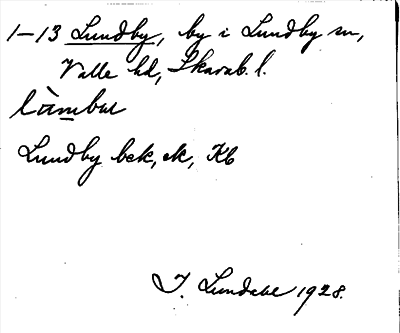 1–13 Lundby, by i Lundby sn,
Valle hd, Skarab. l.
làmbu
Lundby bek, ek, Kb
I. Lundahl 1928.